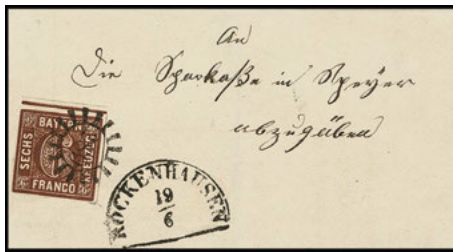 An
Die Sparkaße in Speyer
abzugäben
BAYERN
SECHS
KREUZER
FRANCO
ROCKENHAUSEN
19
6